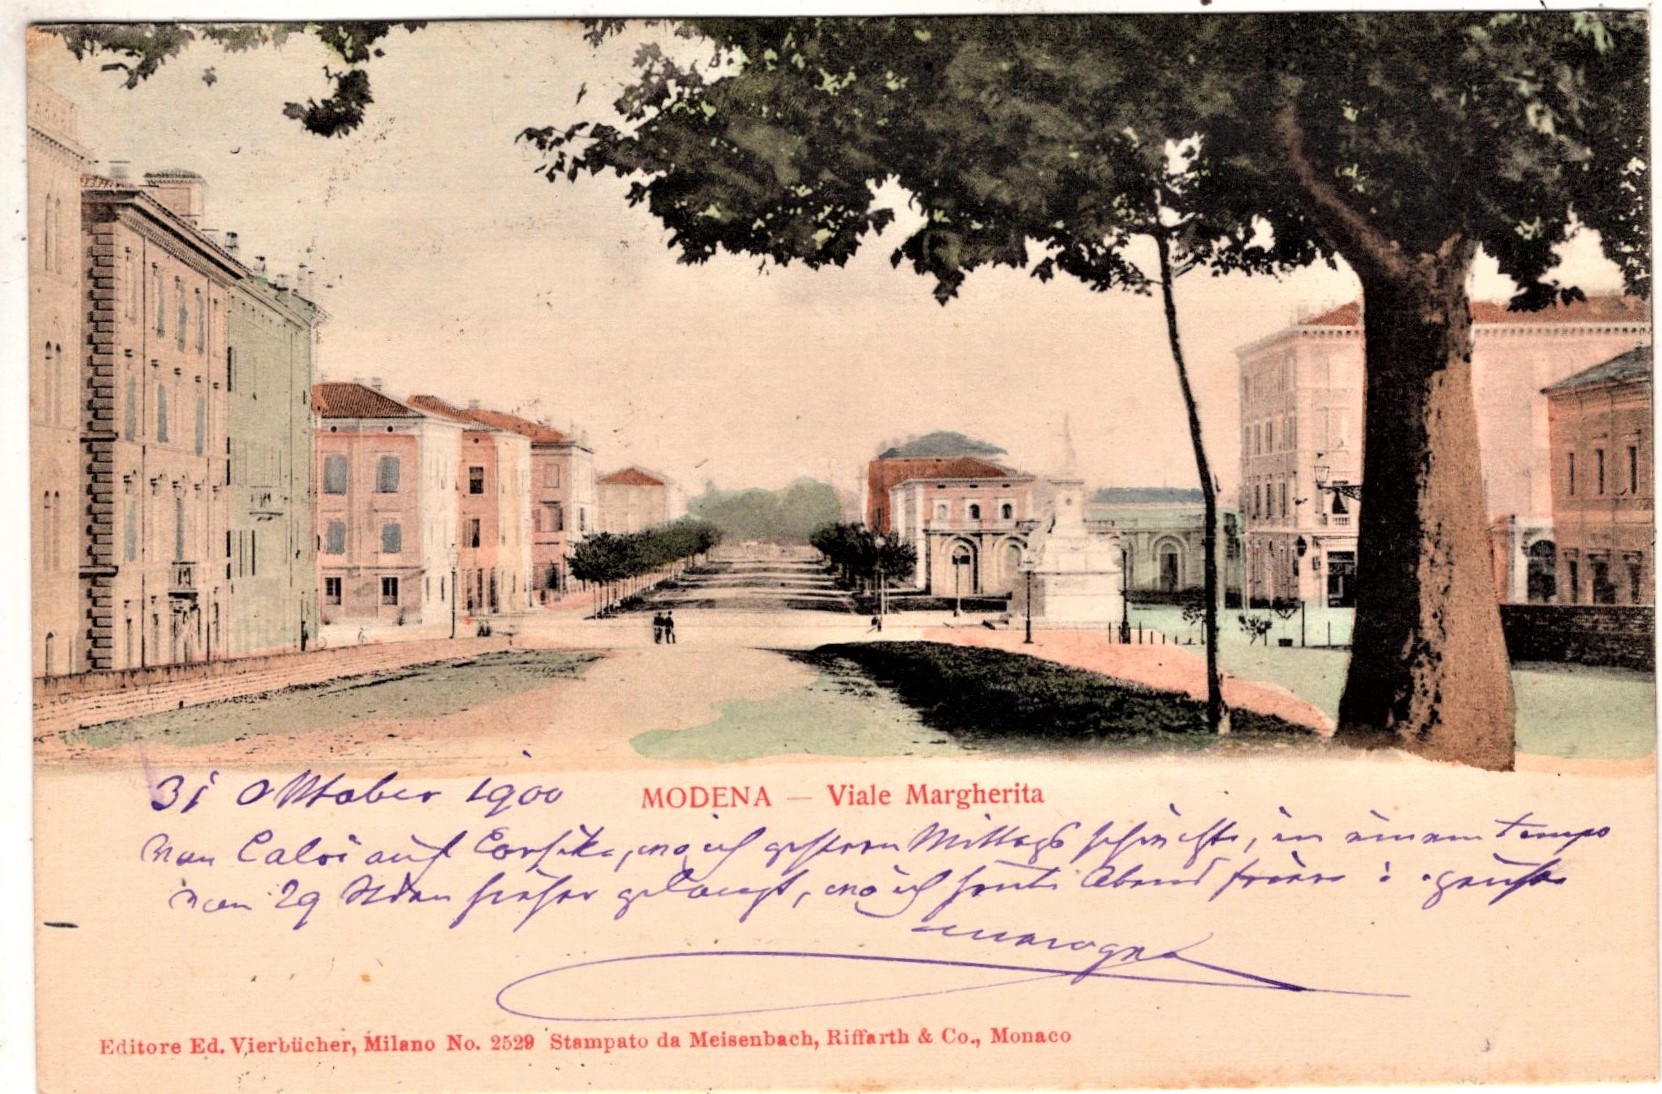 31 Oktober 1900
MODENA — Viale Margherita
Von Calvi auf Corsika, wo ich gestern Mittags schwitzte, in einem Tempo
von 29 Stden hieher gelangt, wo ich heute Abend friere!
Editore Ed. Vierbücher, Milano No. 2529 Stampato da Meisenbach, Riffarth & Co., Monaco